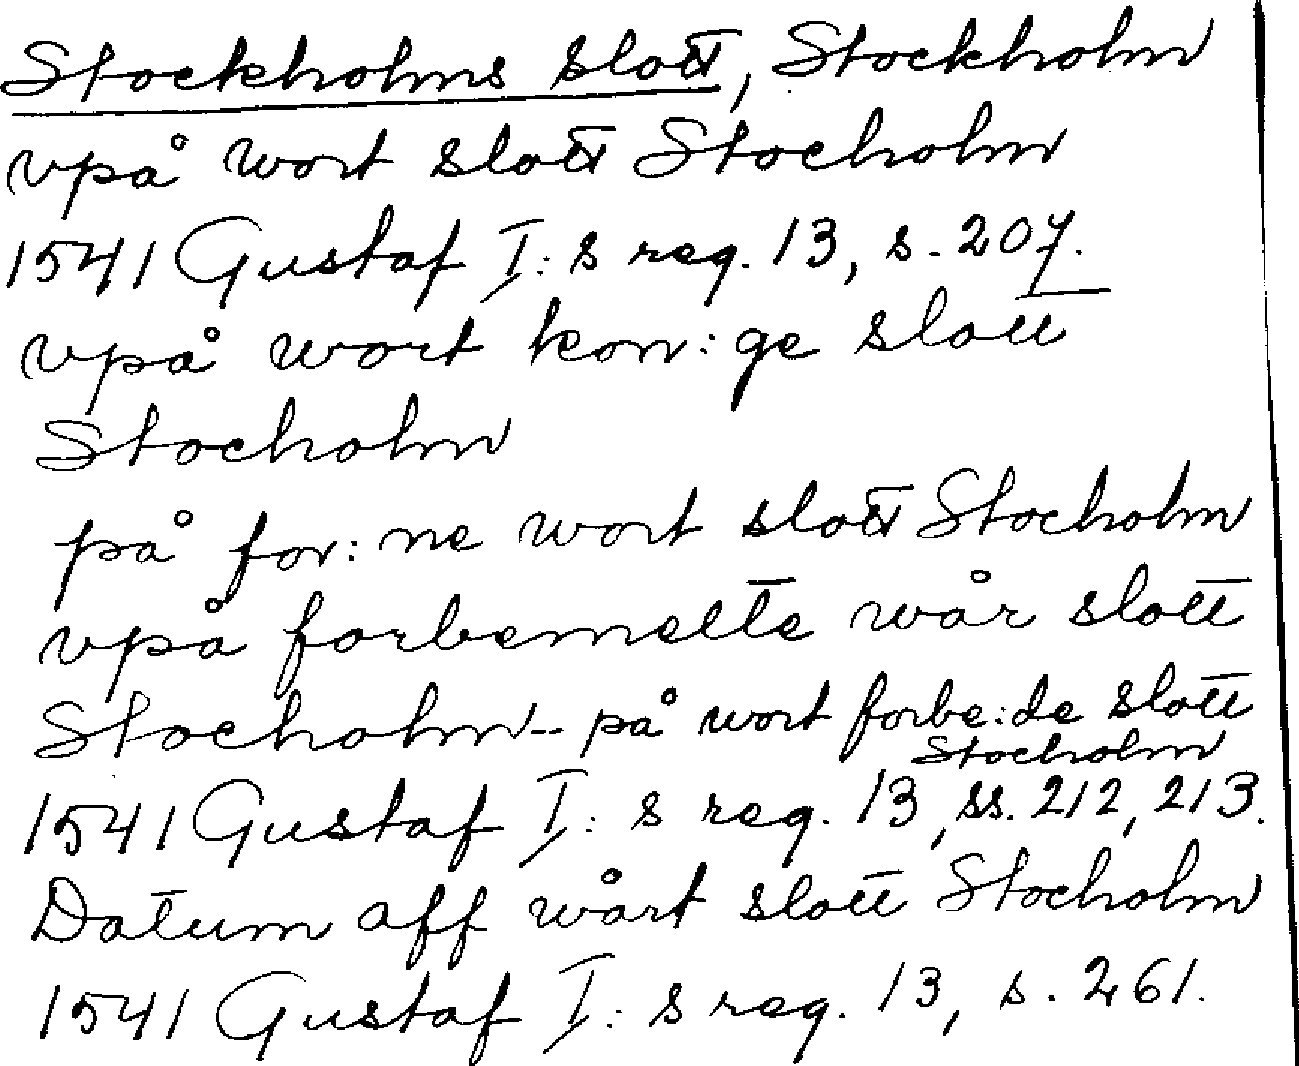 Stockholms slott, Stockholm
vpå wort slott Stocholm
1541 Gustaf I:s reg. 13, s. 207.
vpå wort kon:ge slott
Stocholm
på for:ne wort slott Stocholm
vpå forbemelte wår slott
Stocholm -- på wort forbe:de slott
Stocholm
1541 Gustaf I:s reg. 13, ss. 212, 213.
Datum aff wårt slott Stocholm
1541 Gustaf I:s reg. 13, s. 261.